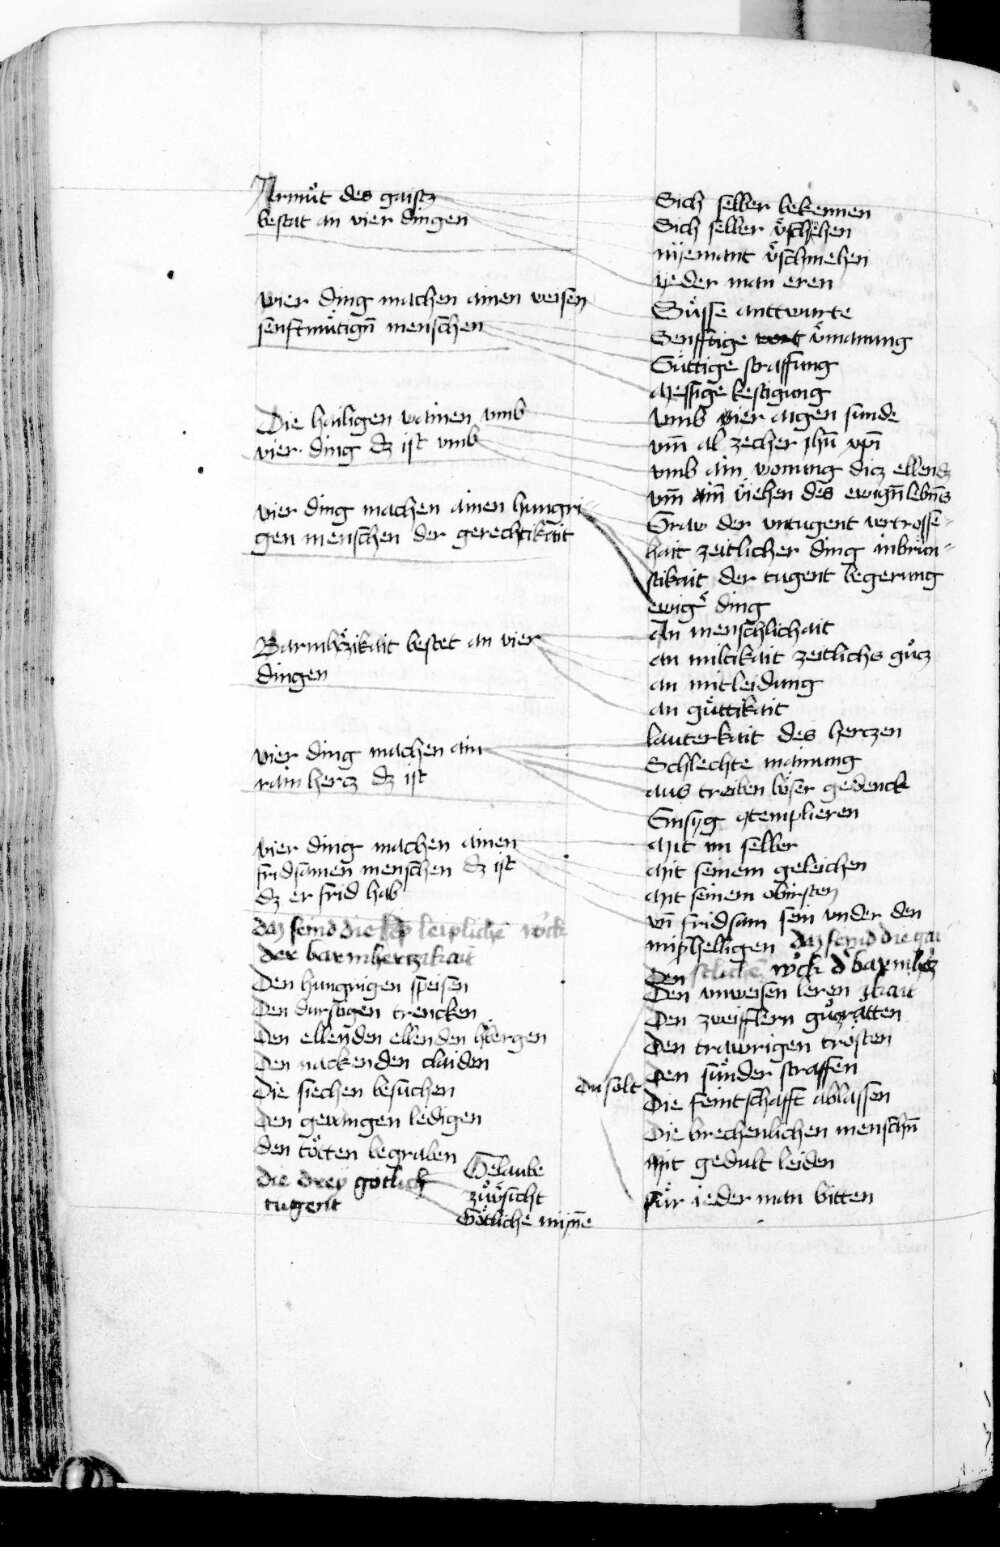 Armůt des gaistz
bestat an vier dingen
vier ding machen ainen weisen
senftmůtign̄ menschen
Die hailigen wainen vmb
vier ding dz ist vmb
vier ding machen ainen hungri-
gen menschen der gerechtikait
Barmhᵒzikait bestet an vier
dingen
vier ding machen ain
rain hercz dz ist
vier ding machen ainen
fridsamen menschen dz ist
dz er frid hab
daz seind die leiplichē wᵒck
der barmhertzikait
Den hungrigen speisen
Den durstigen trencken
Den ellenden ellenden hᵒbergen
Den nackenden claiden
Die siechen besuchen
Den gevangen ledigen
den totten begraben
die dreÿ gotlich
tugent
Gelaube
zůvᵒsicht
Gotliche minne
Sich selber bekennen
Sich selber vᵒschehen
nÿemant vᵒschmehen
yeder man eren
Sůsse anttwurte
Senfftige vᵒmanung
Gůttige straffung
Messige kestigung
vmb vier aigen sunde
vm̄ al zecher jhū xp̄i
vmb ain wonung dicz ellendz
vm̄ ain viehen des ewign̄ lebn̄s
Graw der vntugent vertrosse-
hait zeitlicher ding inbrün-
stikait der tugent begerung
ewigᵒ ding
An menschlichait
an miltikait zeitlichs gůcz
an mitleidung
an gůttikait
lauterkait des herczen
Schlechte mainung
aus treiben bᵒser gedenck
Emsÿg ꝯtemplieren
Mit im selber
Mit seinem geleichen
Mit seinem obirsten
vn̄ fridsam sein vnder den
mißhelligen daz seind die gai
stlichē wᵒck dᵒ barmhᵒcz
ikait
Den vnweisen leren
Den zweifflern gůt ratten
Den trawrigen trosten
Den sůnder straffen
Die feintschafft ablassen
Die brechenlichen menschn̄
Mit gedult leiden
Für ieder man bitten
Du solt